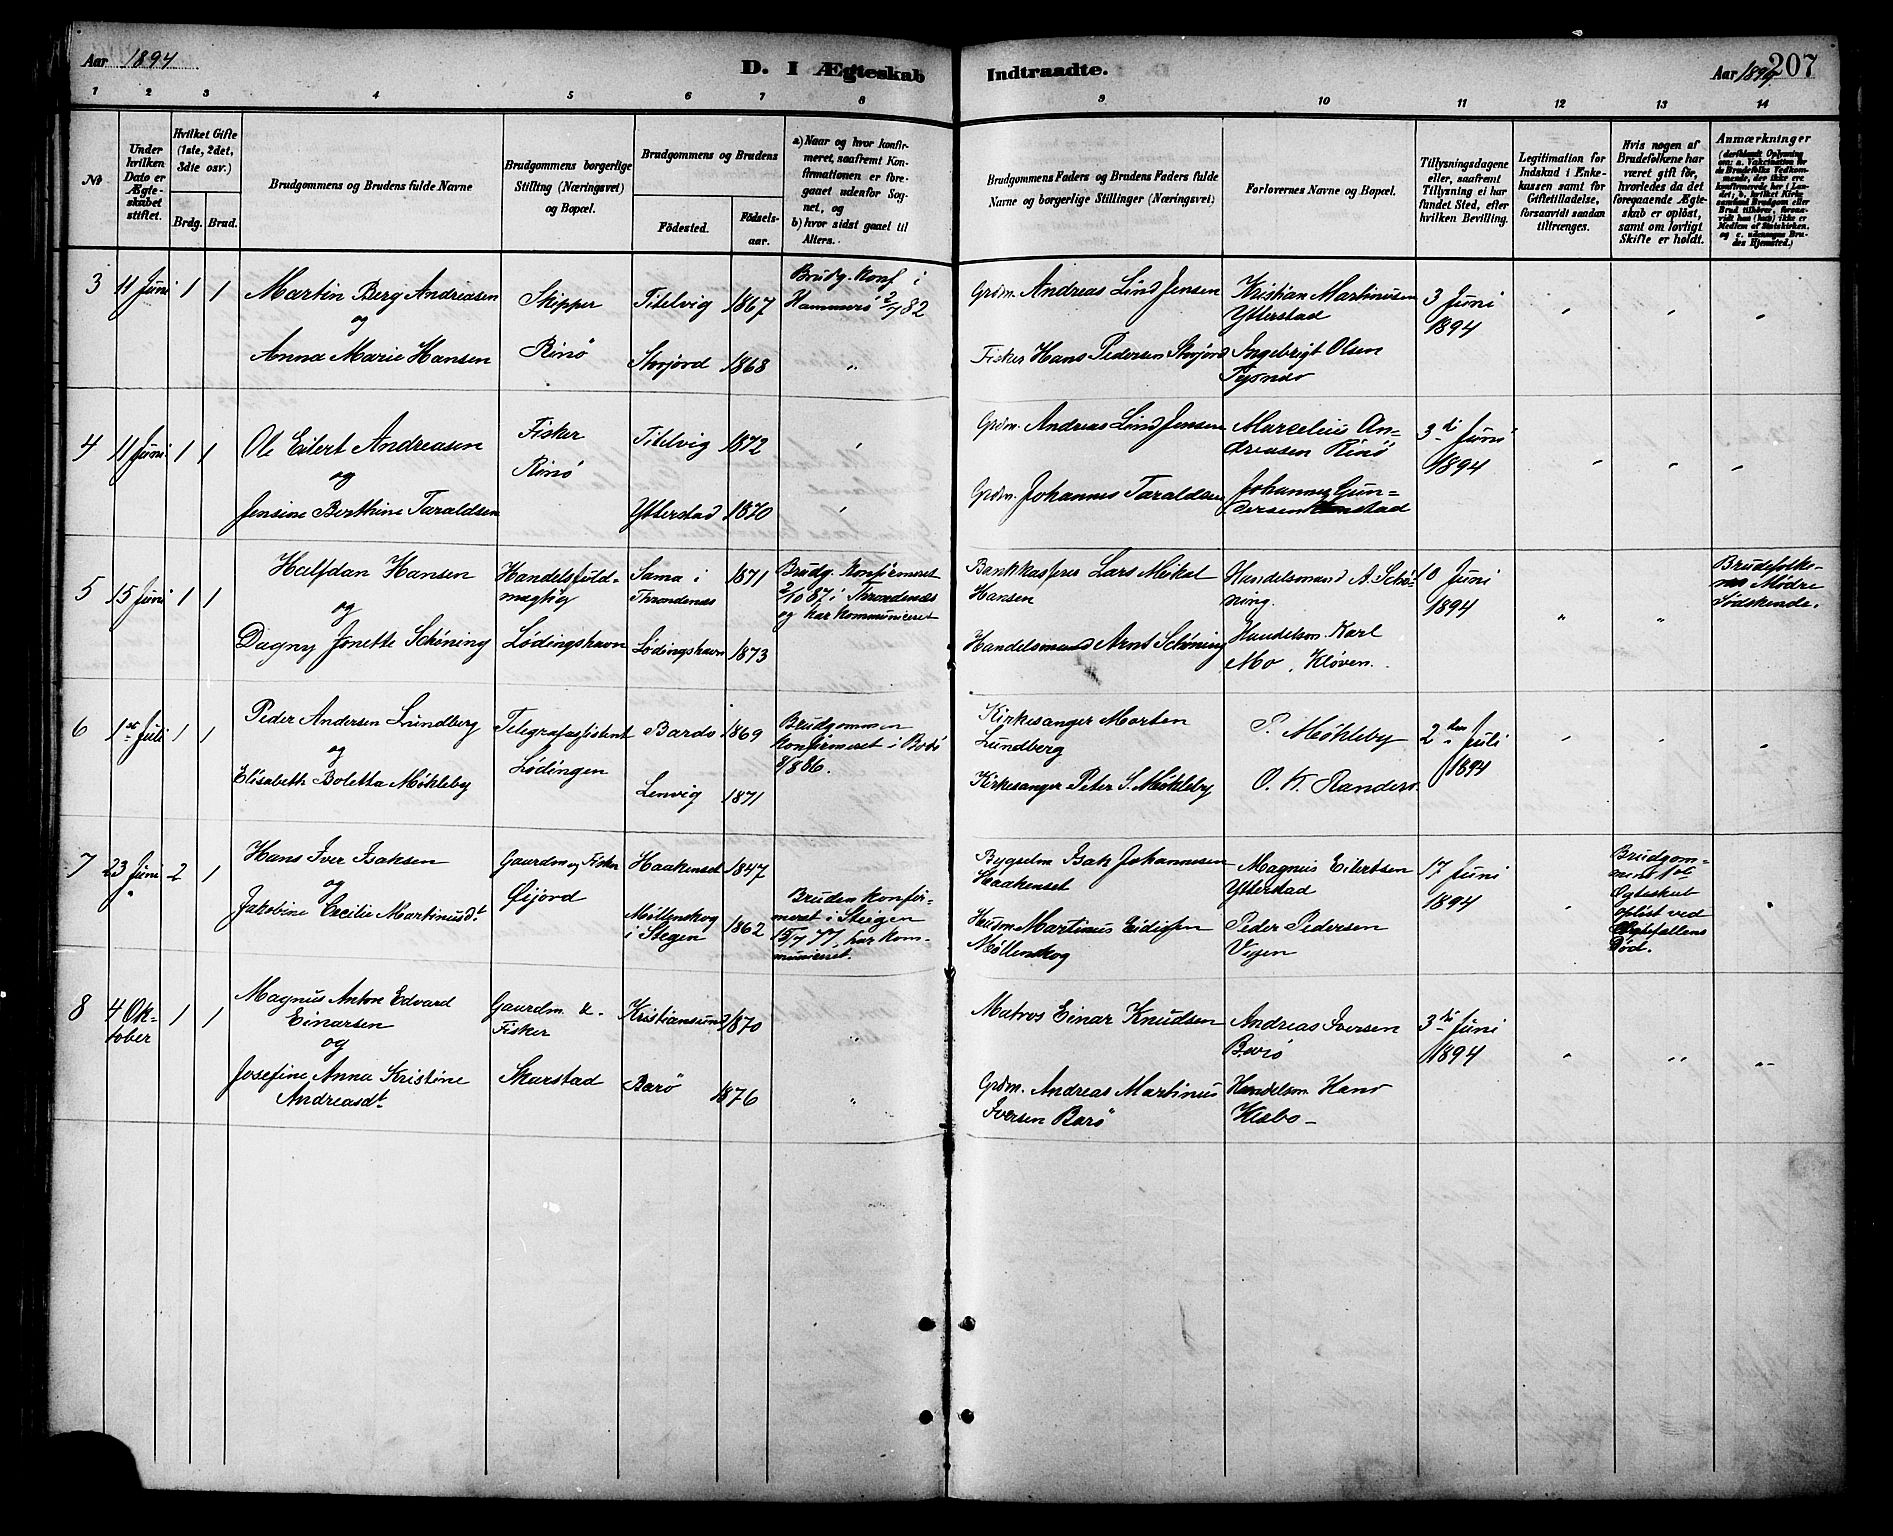 Aar 1894
D. I Ægteskab
Indtraadte.
Aar 1894.
207
1 2 3 4 5 6 7 8 9 10 11 12 13 14
No
Under hvilken Dato er Ægteskabet stiftet.
Hvilket Gifte (1ste, 2det, 3die osv.)
Brdg. Brud.
Brudgommens og Brudens fulde Navne
Brudgommens borgerlige Stilling (Næringsvei) og Bopæl.
Brudgommens og Brudens
Födested.
Födselsaar.
a) Naar og hvor konfirmeret, saafremt Konfirmationen er foregaaet udenfor Sognet, og
b) hvor sidst gaaet til Alters.
Brudgommens Faders og Brudens Faders fulde Navne og borgerlige Stillinger (Næringsvei)
Forlovernes Navne og Bopæl.
Tillysningsdagene eller, saafremt Tillysning ei har fundet Sted, efter hvilken Bevilling.
Legitimation for Indskud i Enkekassen samt for Giftetilladelse, forsaavidt saadan tiltrænges.
Hvis nogen af Brudefolkene har været gift för, hvorledes da det foregaaende Ægteskab er oplöst, samt om lovligt Skifte er holdt.
Anmærkninger
3 11 Juni 1 1
Martin Berg Andreasen
og
Anna Marie Hansen
Skipper
Rinö
Titelvig 1867
Storjord 1868
Brudg. Konf i
Hammerö 2/7 82
"
Grdm. Andreas Lind Jensen
Fisker Hans Pedersen Storjord
Kristian Martinusen
Ytterstad
Ingebrigt Olsen
3 Juni
1894
" " "
4 11 Juni 1 1
Ole Eilert Andreasen
og
Jensine Berthine Taraldsen
Fisker
Rinö
Titelvig 1872
Ytterstad 1870
Grdm. Andreas Lind Jensen
Grdm. Johannes Taraldsen
Marcelius An-
dreasen Rinö
Johannes Gun-
dersen
3die Juni
1894
" " "
5 15 Juni 1 1
Halfdan Hansen
og
Dagny Jonette Schöning
Handelsfuld-
mægtig
Lödingshavn
Sama i
Throndenæs
1871
Lödingshavn 1873
Brudg. Konfirmeret
2/10 87 i Throndenæs
og har kommuniceret
Bankkasserer Lars Mikal
Hansen
Handelsmand Arnt Schöning
Handelsmand A. Schö-
ning.
Handelsm. Karl
Mo, Klöven.
10 Juni
1894
" "
Brudefolke-
nes Mödre
Södskende.
6 1ste Juli 1 1
Peder Andersen Lundberg
og
Elisabeth Boletta Mökleby
Telegrafassistent
Lödingen
Bardo 1869
Lenvig 1871
Brudgommen
konfirmeret i Bodö
8/8 86.
Kirkesanger Morten
Lundberg
Kirkesanger Peter S. Mökleby
P. Mökleby
O. K. Randers.
2den Juli
1894
" " "
7 23 Juni 2 1
Hans Iver Isaksen
og
Jakobine Cecilie Martinusdt
Gaardm og Fisker
Öijord
Haakenset 1847
Möllenskog
i Stegen
1862
Bruden konfir-
meret i Steigen
15/7 77, har kom-
municeret.
Bygselm Isak Johannesen
Haakenset
Husm Martinus Eidissen
Möllenskog
Magnus Eilertsen
Ytterstad
Peder Pedersen
Vigen
17 Juni
1894
Brudgom-
mens 1ste
Ægteskab
oplöst ved
Ægtefællens
Död.
8 4 Ok-
tober
1 1
Magnus Anton Edvard
Einarsen
og
Josefine Anna Kristine
Andreasdt
Gaardm &
Fisker
Skarstad
Kristiansund 1870
Barö 1876
"
Matros Einar Knudsen
Grdm. Andreas Martinus
Iversen Barö
Andreas Iversen
Barö
Handelsm. Hans
Klæbo
3die Juni
1894
" " "